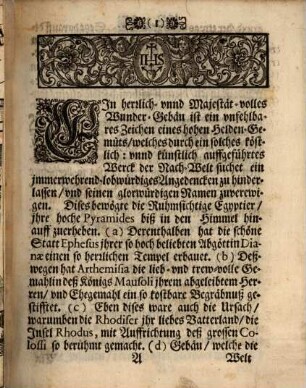 (1)
IHS
EIn herrlich- vnnd Majestät-volles
Wunder-Gebäu ist ein vnfehlba-
res Zeichen eines hohen Helden-Ge-
müts/welches durch ein solches köst-
lich: vnnd künstlich auffgeführtes
Werck der Nach-Welt suchet ein
jmmerwehrend-lobwürdiges Angedencken zu hinder-
lassen/vnd seinen glorwürdigen Namen zuverwi-
gen. Dises bewögte die Ruhmsichtige Egyptier/
jhre hoche Pyramides biß in den Himmel hin-
auff zuerheben. (a) Derenthalben hat die schöne
Statt Ephesus jhrer so hoch beliebten Abgöttin Dia-
næ einen so herrlichen Tempel erbauet. (b) Deß-
wegen hat Arthemisia die lieb- vnd trew-volle Ge-
mahlin deß Königs Mausoli jhrem abgeleibtem Her-
ren/ vnd Ehegemahl ein so kostbare Begräbnuß ge-
stifftet. (c) Eben dises ware auch die Ursach/
warumben die Rhodiser jhr liebes Vatterland/ die
Insel Rhodus, mit Auffrichtung deß grossen Co-
lossi so berühmt gemacht. (d) Gebäu/ welche die
A Welt